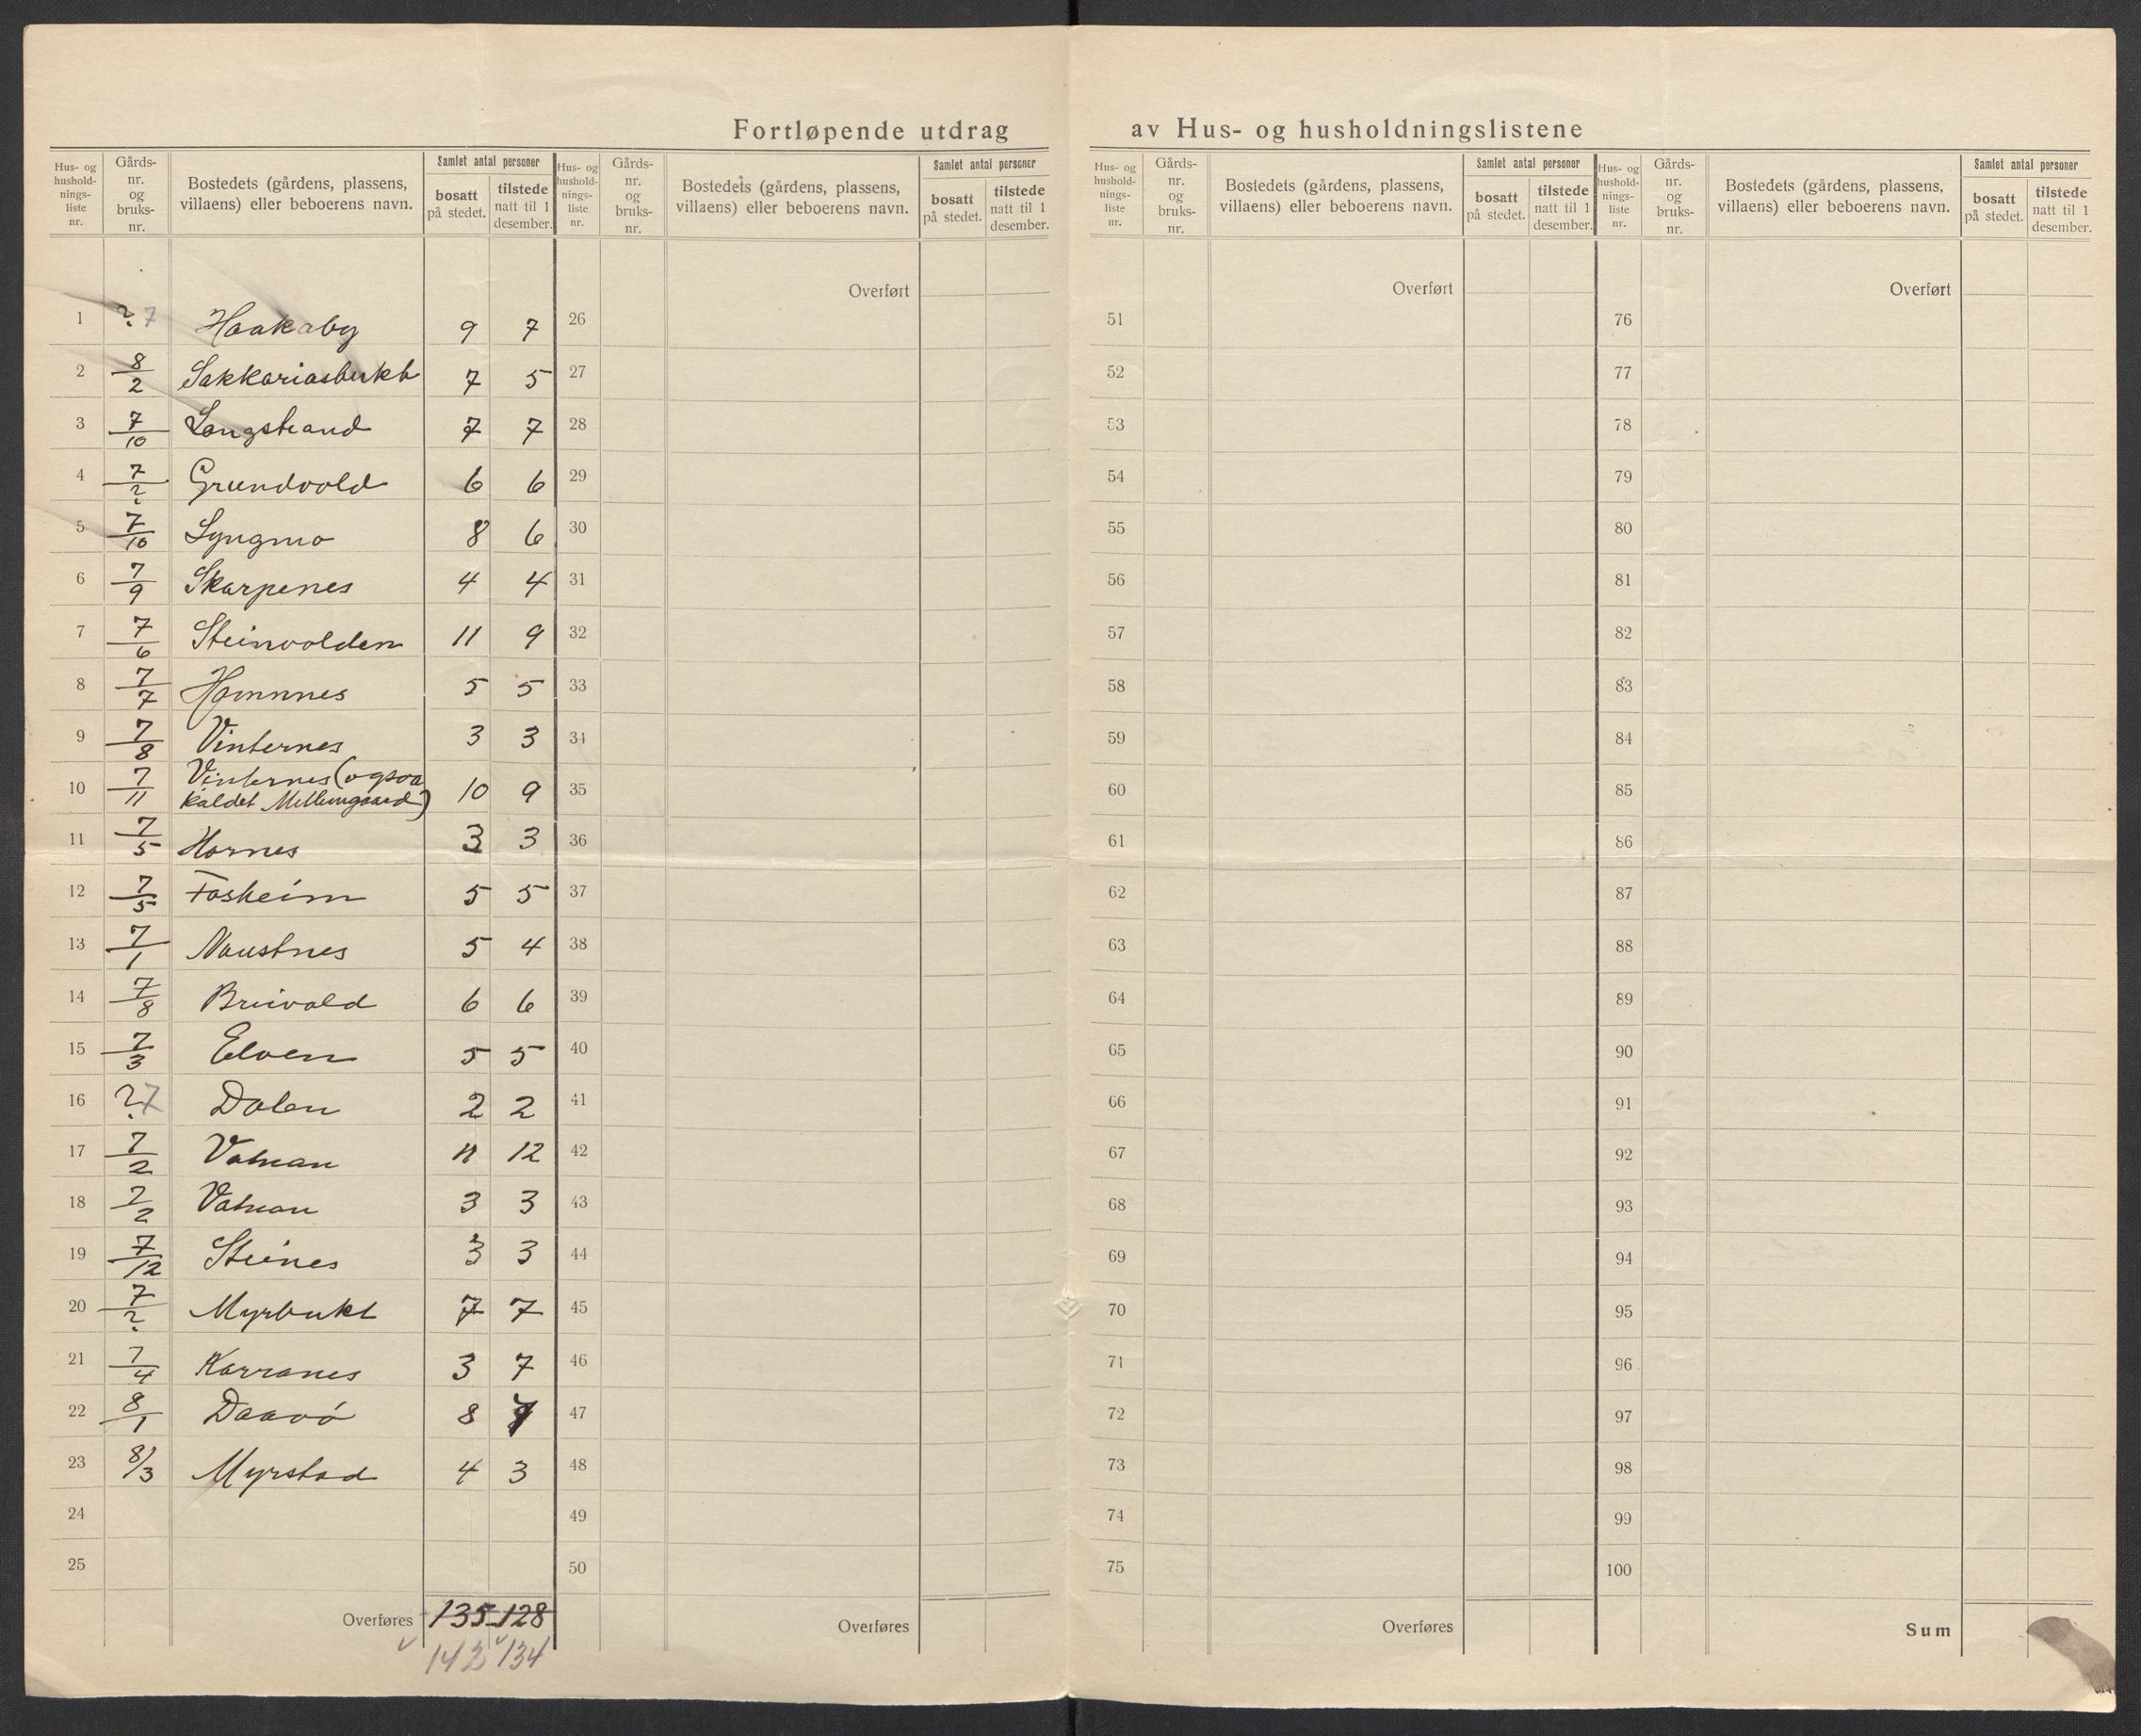 Fortløpende utdrag av Hus- og husholdningslistene
Hus- og husholdnings-liste nr. | Gårds-nr. og bruks-nr. | Bostedets (gårdens, plassens, villaens) eller beboerens navn. | Samlet antal personer | bosatt på stedet. | tilstede natt til 1 desember.
1 ? 7 Haakaby 9 7
2 8/2 Sakkariasbukt 7 5
3 7/10 Langstrand 7 7
4 7/? Grundvold 6 6
5 7/10 Lyngmo 8 6
6 7/9 Skarpenes 4 4
7 7/6 Steinvolden 11 9
8 7/7 Hamnnes 5 5
9 7/8 Vinternes 3 3
10 7/11 Vinternes (ogsaa
kaldet Mellemgaard) 10 9
11 7/5 Hornes 3 3
12 7/5 Fosheim 5 5
13 7/1 Naustnes 5 4
14 7/8 Breivold 6 6
15 7/3 Elven 5 5
16 ? 7 Dalen 2 2
17 7/2 Vatnan 11 12
18 7/2 Vatnan 3 3
19 7/12 Steines 3 3
20 7/? Myrbukt 7 7
21 7/4 Karranes 3 7
22 8/1 Daavø 8 7
23 8/3 Myrstad 4 3
24
25
Overføres 135 128
142 134
Hus- og husholdnings-liste nr. | Gårds-nr. og bruks-nr. | Bostedets (gårdens, plassens, villaens) eller beboerens navn. | Samlet antal personer | bosatt på stedet. | tilstede natt til 1 desember.
Overført
26
27
28
29
30
31
32
33
34
35
36
37
38
39
40
41
42
43
44
45
46
47
48
49
50
Overføres
Hus- og husholdnings-liste nr. | Gårds-nr. og bruks-nr. | Bostedets (gårdens, plassens, villaens) eller beboerens navn. | Samlet antal personer | bosatt på stedet. | tilstede natt til 1 desember.
Overført
51
52
53
54
55
56
57
58
59
60
61
62
63
64
65
66
67
68
69
70
71
72
73
74
75
Overføres
Hus- og husholdnings-liste nr. | Gårds-nr. og bruks-nr. | Bostedets (gårdens, plassens, villaens) eller beboerens navn. | Samlet antal personer | bosatt på stedet. | tilstede natt til 1 desember.
Overført
76
77
78
79
80
81
82
83
84
85
86
87
88
89
90
91
92
93
94
95
96
97
98
99
100
Sum